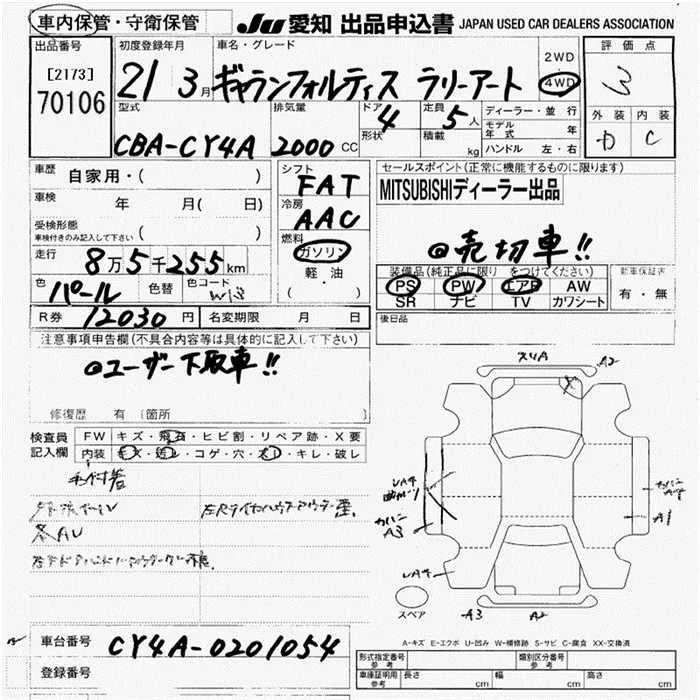 車内保管・守衛保管 JU 愛知 出品申込書 JAPAN USED CAR DEALERS ASSOCIATION
出品番号 初度登録年月 車名・グレード 2WD 評価点
[2173] 21 3月 ギャランフォルティス ラリーアート 4WD 3
70106 型式 排気量 ドア 4 定員 5人 ディーラー・並行 外装 内装
CBA-CY4A 2000CC 形状 積載 kg モデル年式 年 D C
ハンドル 左・右
車歴 自家用・( ) シフト FAT セールスポイント(正常に機能するものに限ります)
車検 年 月( 日) 冷房 AAC MITSUBISHIディーラー出品
受検形態 ( ) 燃料
車検付きのみ記入して下さい ガソリン ◎売切車!!
走行 8万5千255km 軽・油 装備品(純正品に限り をつけてください) 新車保証書
色 パール 色替 色コード W13 ( ) PS PW エアB AW 有・無
SR ナビ TV カワシート
R券 12030円 名変期限 月 日 後日品
注意事項申告欄(不具合内容等は具体的に記入して下さい)
◎ユーザー下取車!!
修復歴 有 (箇所 )
スリA A2
検査員 FW キズ・飛石・ヒビ割・リペア跡・X要
記入欄 内装 キズ・汚レ・コゲ・穴・スレ・キレ・破レ
UA4
A3 A1
UA4
スペア A3 A2
A-キズ E-エクボ U-凹み W-補修跡 S-サビ C-腐食 XX-交換済
車台番号 CY4A-0201054
型式指定番号 参考 類別区分番号 参考
登録番号 車庫証明用 参考 長さ cm 幅 cm 高さ cm